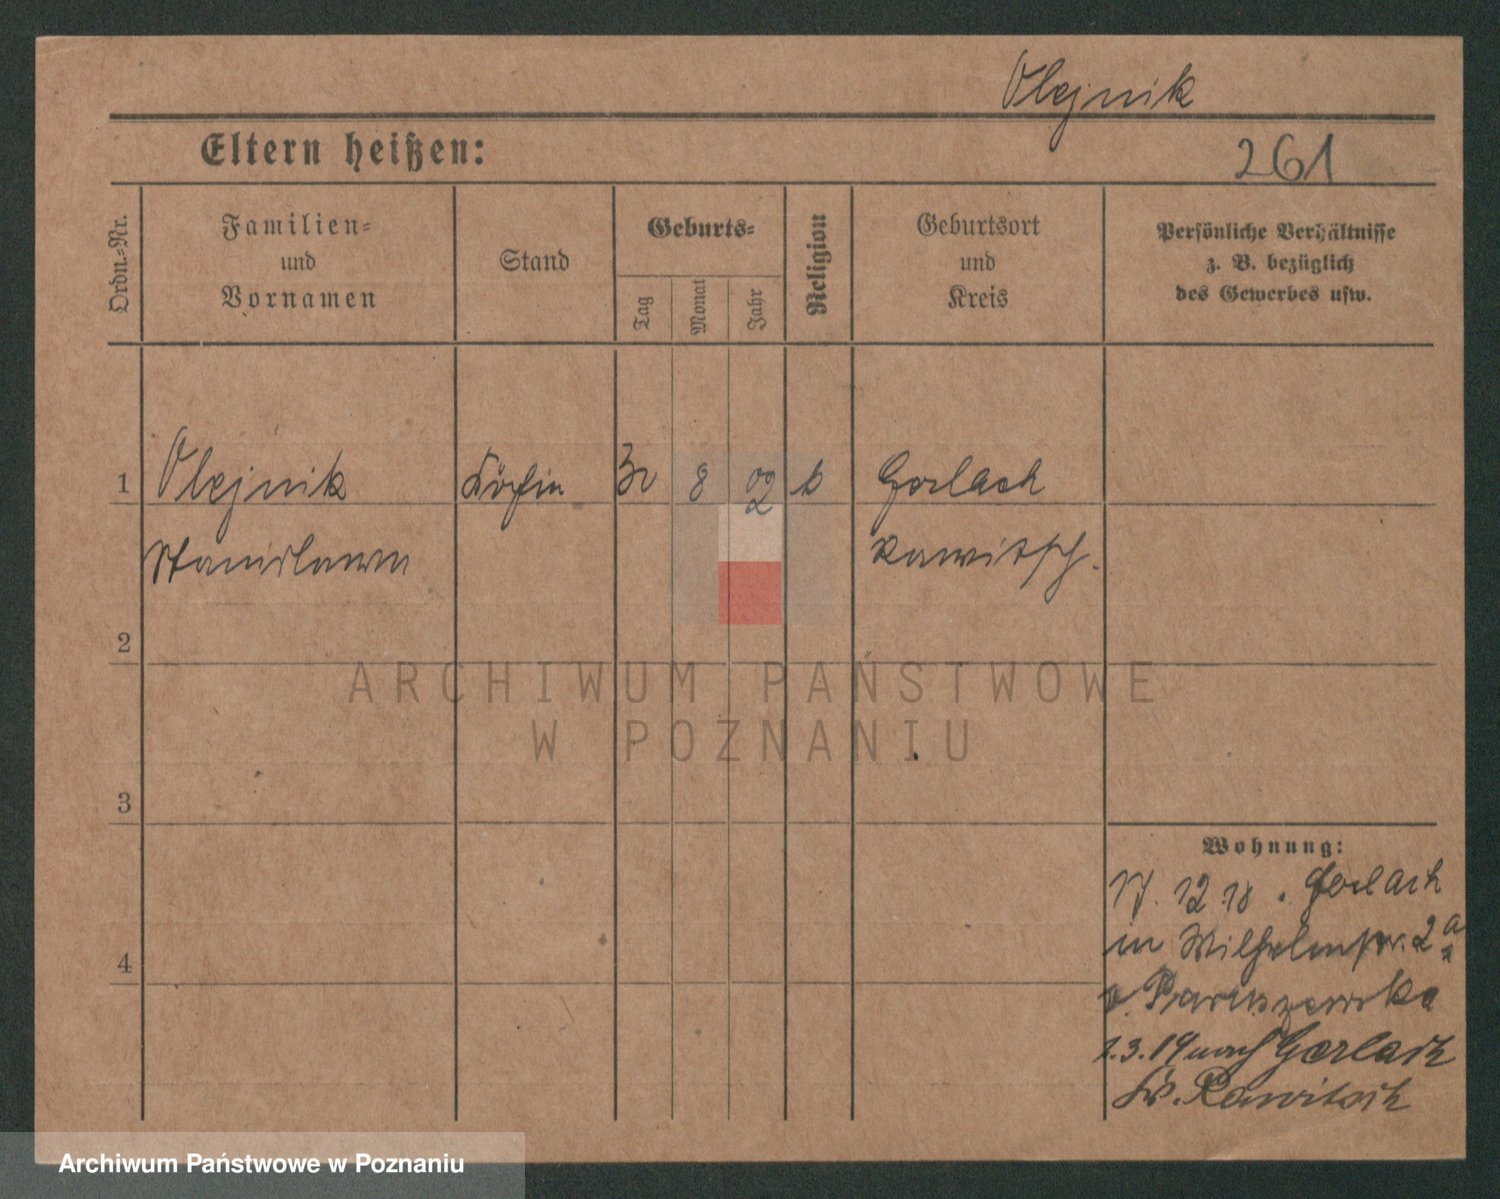 Olejnik
Eltern heißen:
261
Ordn.-Nr.
Familien-
und
Vornamen
Stand
Geburts-
Tag
Monat
Jahr
Religion
Geburtsort
und
Kreis
Persönliche Verhältnisse
z. B. bezüglich
des Gewerbes usw.
1
Olejnik
8
02
k
Gorlach
Stanislawa
Rawitsch.
2
ARCHIWUM PAŃSTWOWE
W POZNANIU
3
Wohnung:
17. 12 18. Gorlach
in Wilhelmstr. 2a
4
1.3.19 nach Gorlach
Kr. Rawitsch
Archiwum Państwowe w Poznaniu